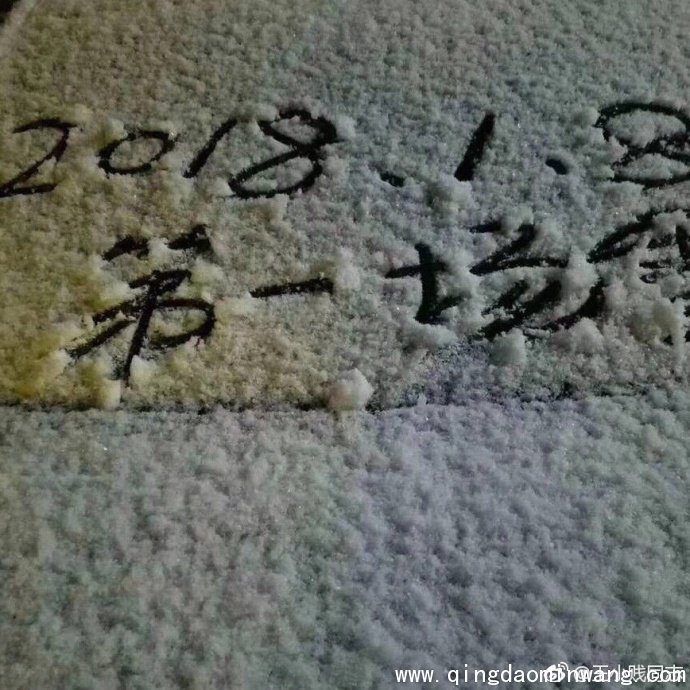 2018.1.8
第一场雪
www.qingdaominwang.com